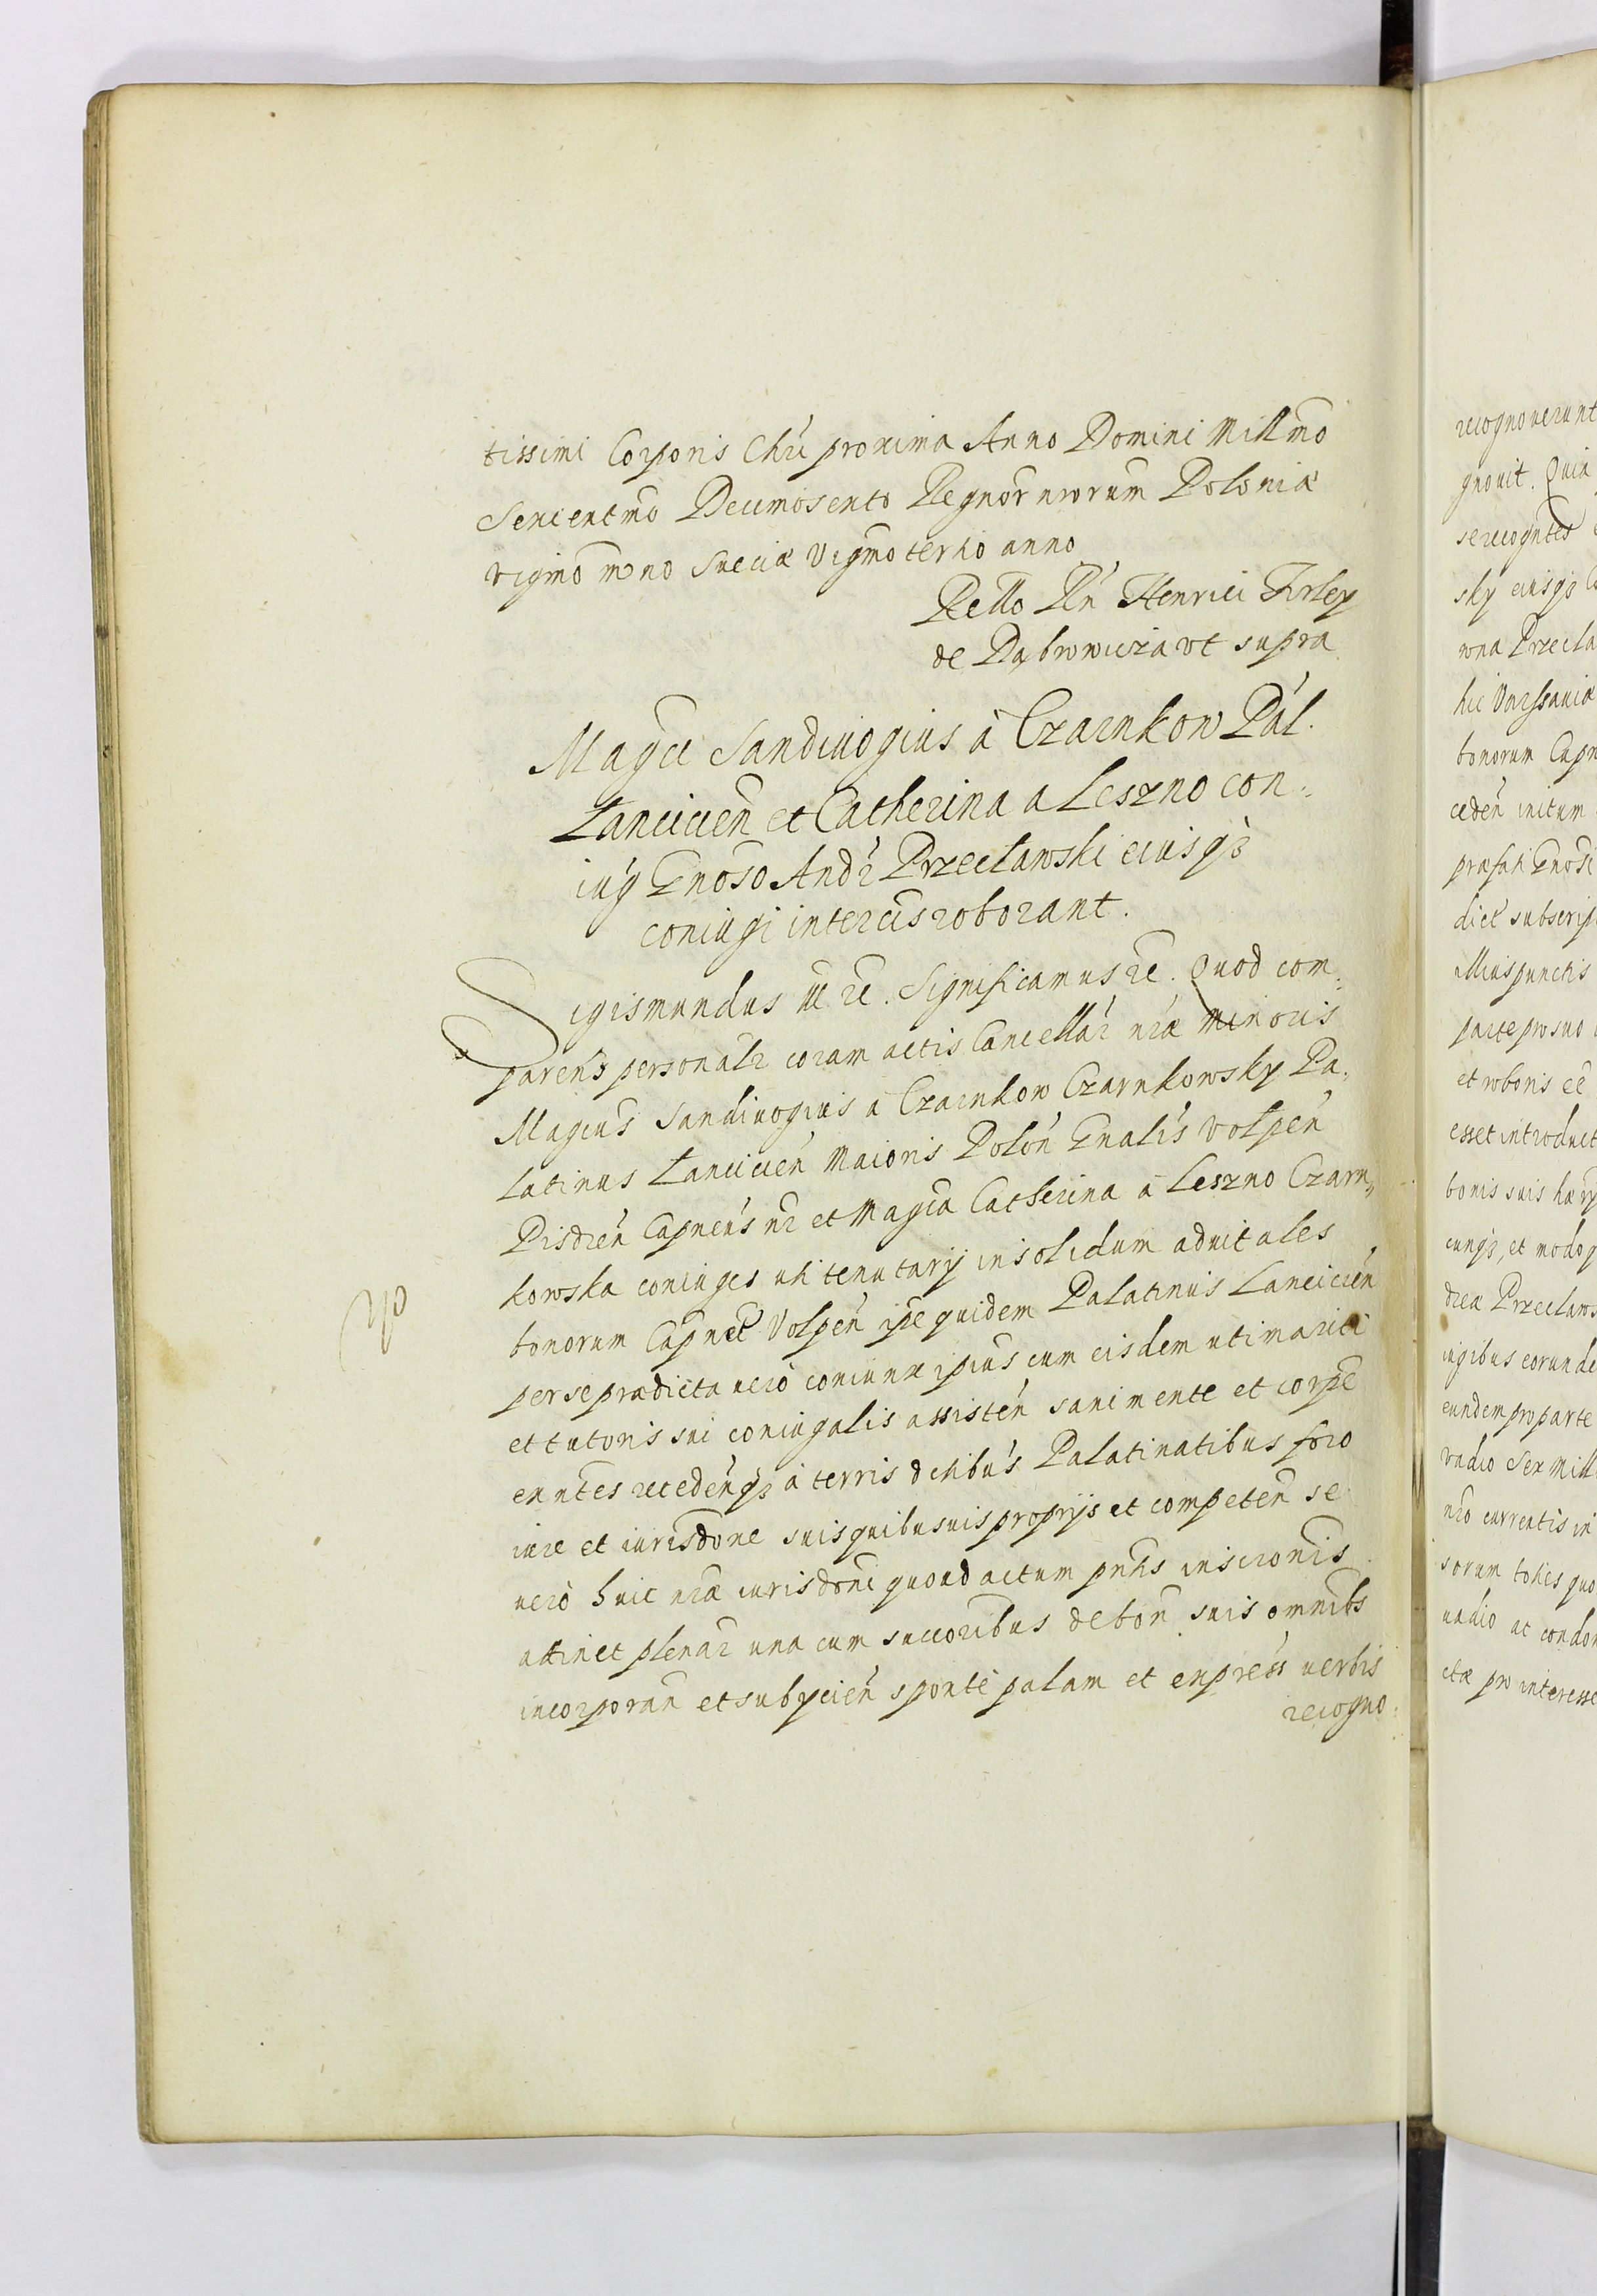 tissimi Corporis Chri proxima Anno Domini Millmo
Sexcentmo Decimosexto Regnor nrorum Poloniæ
vigmo nono Sueciæ Vigmo tertio anno
Rello Rn Henrici Firley
de Dąbrowicza vt supra
Magci Sandivogius à Czarnkow Pal.
Lancicien et Catherina a Leszno con-
iug Gnoso Andr Przecławski eiusqз
coniugi intercis roborant.
Sigismundus III rc. Significamus rc. Quod com-
parens personalr coram actis Cancellar nræ Minoris
Magcus Sandivogius à Czarnkow Czarnkowsky Pa-
latinus Lancicien Maioris Polon Gnalis Volpen
Pisdren Capneus nr et Magca Catherina à Leszno Czarn-
kowska coniuges uti tenutarÿ in solidum advitales
bonorum Capnei Volpen ipe quidem Palatinus Lancicien
per se prædicta vero coniunx ipius cum eisdem uti mariti
et tutoris sui coniugalis assisten sani mente et corpe
exntes recedenqз à terris dchibus Palatinatibus foro
iure et iurisdone suis quibusuis proprÿs et competen se
vero huic nræ iurisdoni quoad actum pntis inscronis
attinet plenar una cum succoribus de bon suis omnibs
incorporan et subÿcien sponte palam et express verbis
recogno-
recognouerunt
gnouit. Quia
se recogntes
sky eiusqз
wna Przecła
hic Varssauiæ
bonorum Capn
ceden initum
præfati Gnosi
dict subscrip
illius punctis
parte pro suo
et roboris ee
esset introduct
bonis suis hær
cunqз, et modo
drea Przecławs
iugibus eorunde
eundem pro parte
vadio Sex Mill
nro currentis in
sorum toties quo
vadio ac condon
ctæ pro interesse